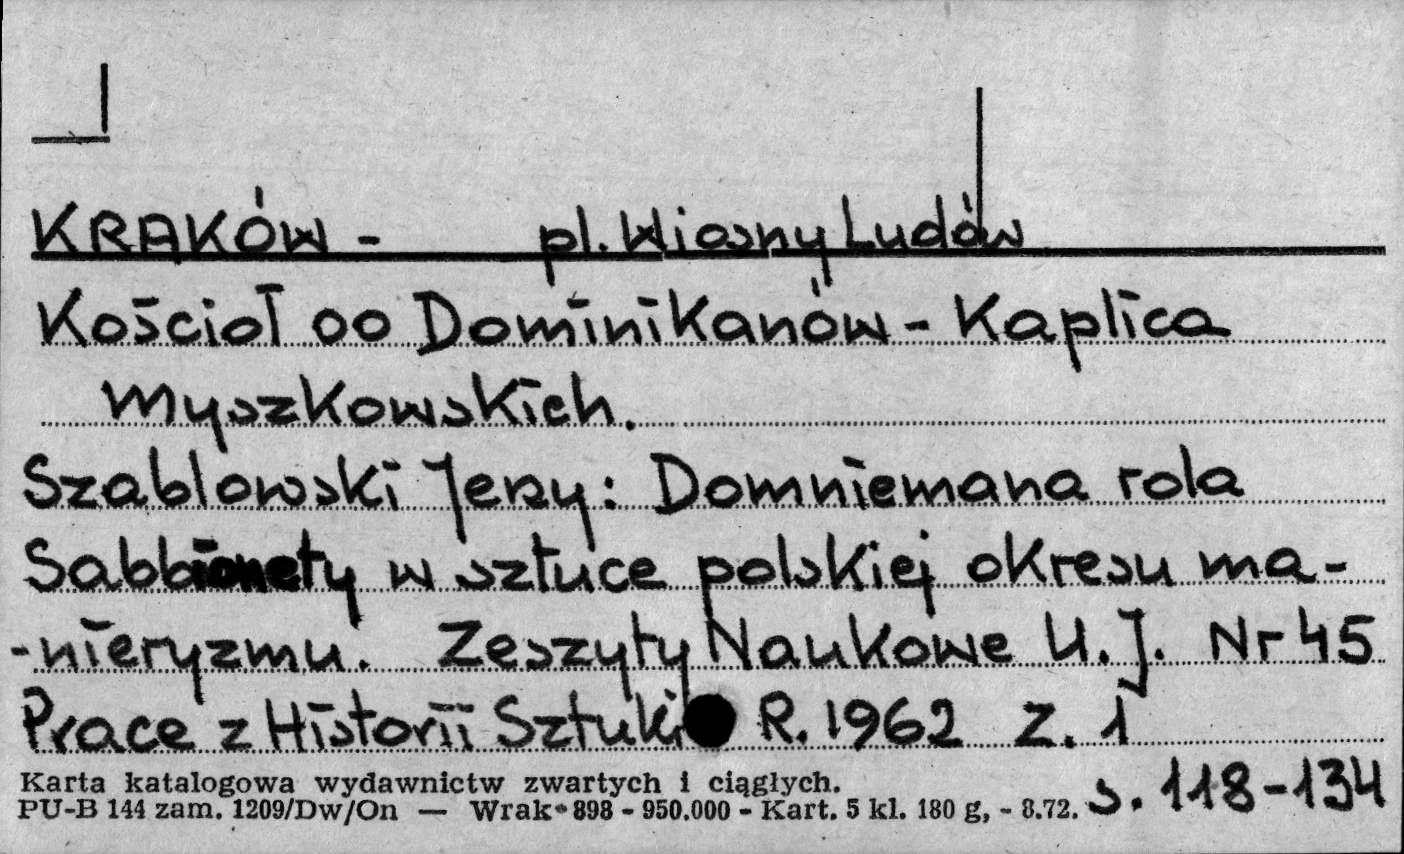 KRAKÓW - pl. Wiosny Ludów
Kościoł oo Dominikanów - Kaplica
Myszkowskich.
Szablowski Jerzy: Domniemana rola
Sabbionety w sztuce polskiej okresu ma-
-nieryzmu. Zeszyty Naukowe U.J. Nr 45
Prace z Historii Sztuki R. 1962 Z. 1
s. 118-134
Karta katalogowa wydawnictw zwartych i ciągłych.
PU-B 144 zam. 1209/Dw/On — Wrak• 898 - 950.000 - Kart. 5 kl. 180 g, - 8.72.